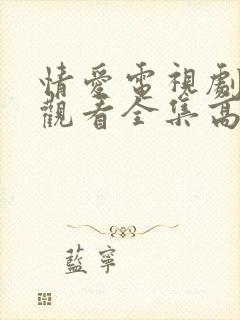 情愛電視劇
觀看全集高
藍寧